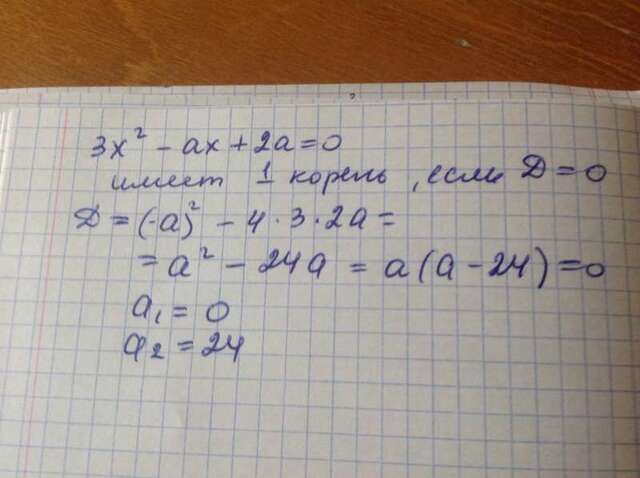 3x² - ax + 2a = 0
имеет 1 корень, если D = 0
D = (-a)² - 4 · 3 · 2a =
= a² - 24a = a(a - 24) = 0
a₁ = 0
a₂ = 24